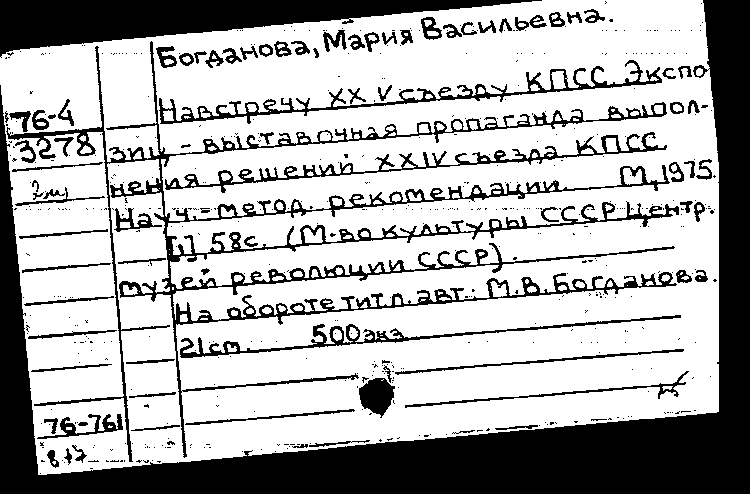 Богданова, Мария Васильевна.
76-4
3278
Навстречу XXV съезду КПСС. Экспо
зиц.-выставочная пропаганда выпол-
нения решений XXIV съезда КПСС.
Науч.-метод. рекомендации. М, 1975.
[1], 58с. (М-во культуры СССР Центр.
музей революции СССР).
На обороте тит.л. авт.: М.В.Богданова.
21см. 500экз
76-761